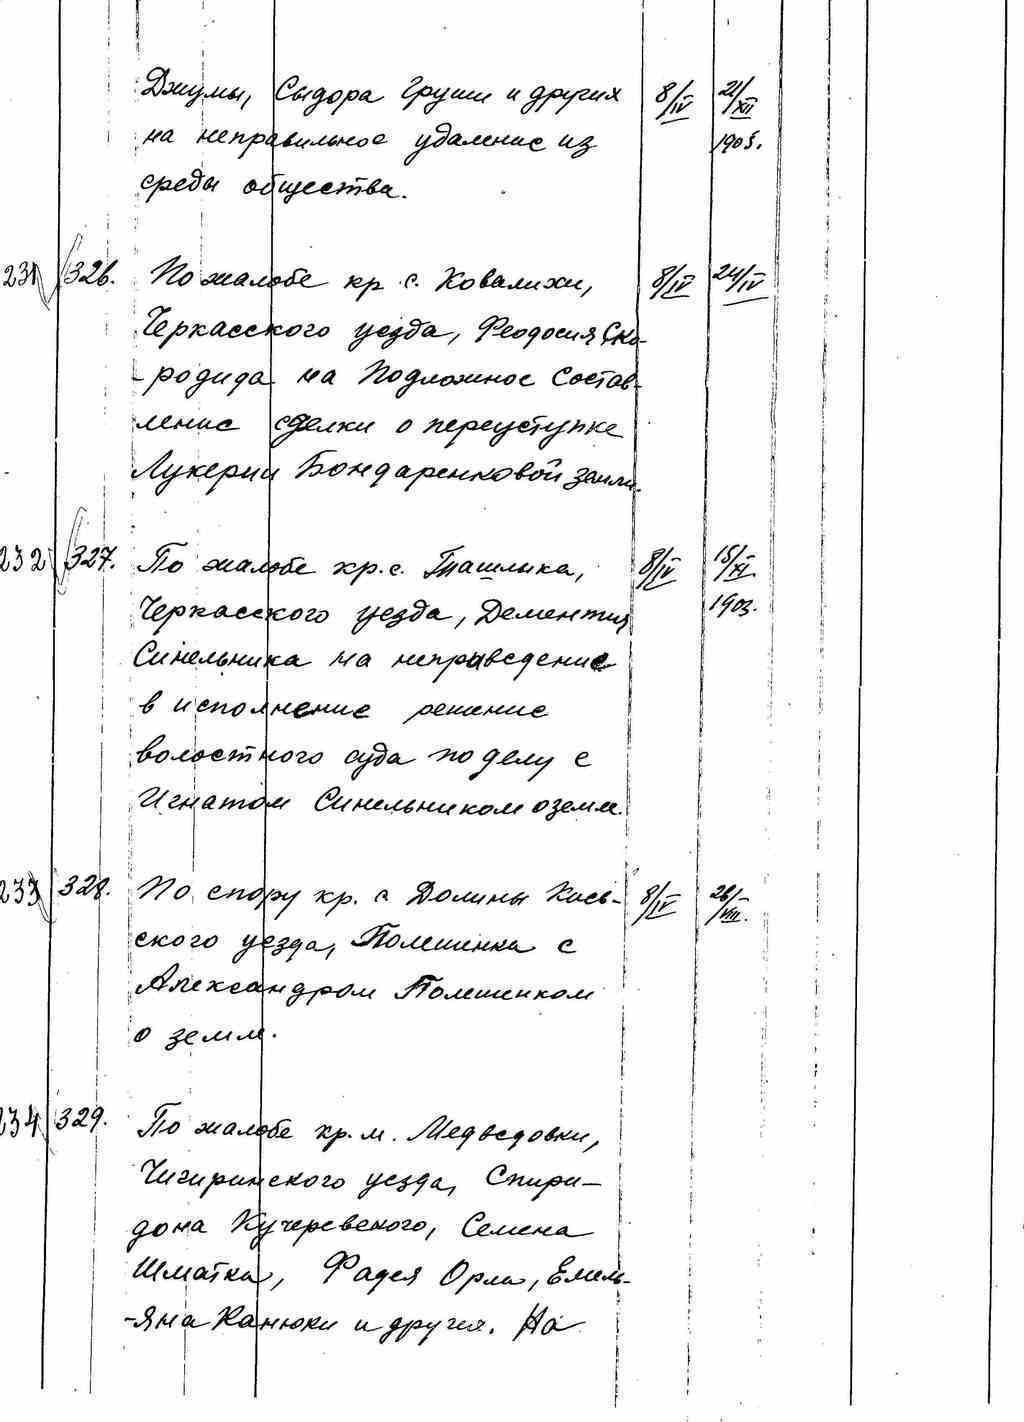 Джумы, Сыдора Груши и других 8/IV 21/XII
на неправильное удаление из 1905.
среды общества.
231 326. По жалобе кр. с. Ковалихи, 8/IV 24/IV
Черкасского уезда, Феодосия Ско-
-родида на Подложное Состав-
ление сделки о переуступке
Лукерии Бондаренковой земли.
232 327. По жалобе кр. с. Ташлыка, 8/IV 15/XI.
Черкасского уезда, Дементия 1903.
Синельника на неприведение
в исполнение решение
волостного суда по делу с
Игнатом Синельником о земле.
233 328. По спору кр. с Долины Киев- 8/IV 26/VIII.
ского уезда, Полешенка с
Александром Полешенком
о земле.
234 329. По жалобе кр. м. Медведовки,
Чигиринского уезда, Спири-
дона Кучеревского, Семена
Шматка, Фадея Орла, Емель-
-яна Канюки и других. На